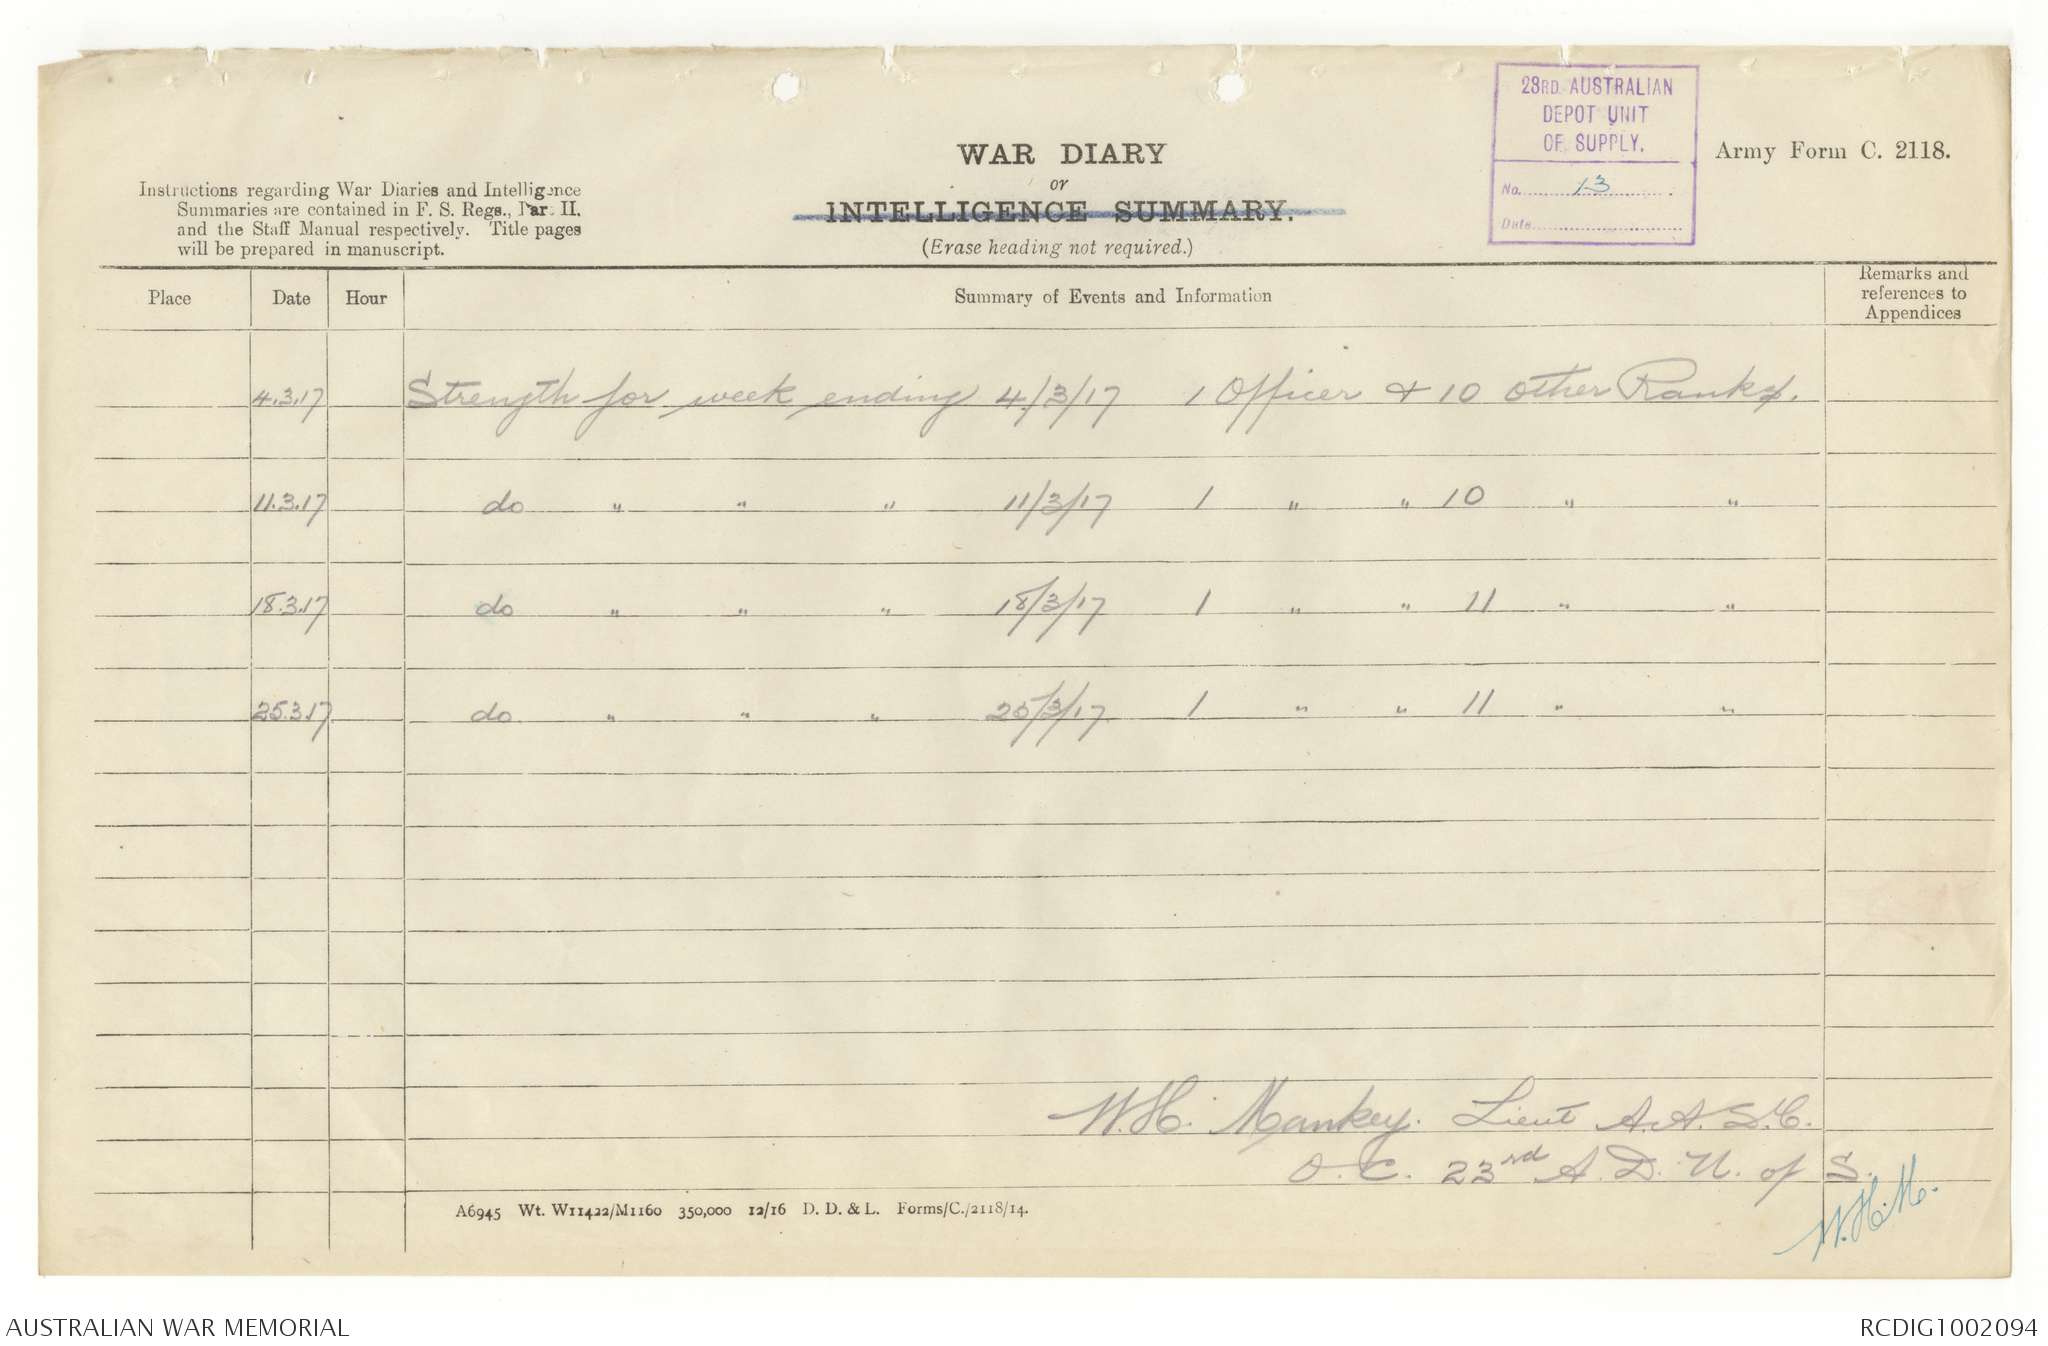 23RD. AUSTRALIAN
DEPOT UNIT
OF SUPPLY.
No. 13
Date
Army Form C. 2118.
WAR DIARY
or
INTELLIGENCE SUMMARY.
(Erase heading not required.)
Instructions regarding War Diaries and Intelligence
Summaries are contained in F. S. Regs., Part II.
and the Staff Manual respectively. Title pages
will be prepared in manuscript.
Place Date Hour Summary of Events and Information Remarks and references to Appendices
4.3.17 Strength for week ending 4/3/17 1 Officer & 10 other Ranks.
11.3.17 do " " " 11/3/17 1 " " 10 " "
18.3.17 do " " " 18/3/17 1 " " 11 " "
25.3.17 do " " " 25/3/17 1 " " 11 " "
W.H. Mankey. Lieut A.A.S.C.
O.C. 23rd A.D.U. of S.
W.H.M.
A6945 Wt. W11422/M1160 350,000 12/16 D. D. & L. Forms/C./2118/14.
AUSTRALIAN WAR MEMORIAL
RCDIG1002094